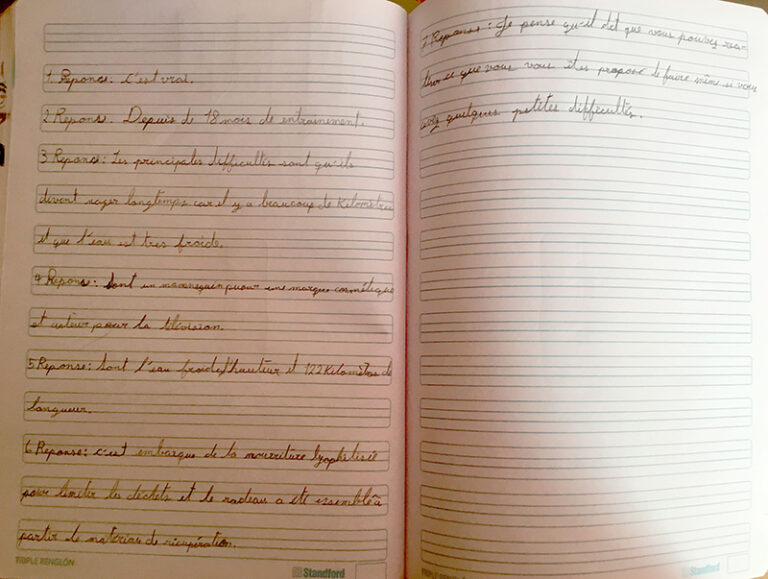 1. Reponse: c'est vrai.
2 Repons. Depuis de 18 mois de entrainement.
3 Repons: Les principales difficultés sont qu'ils
devont nager longtemps car il y a beaucoup de Kilomètres
et que l'eau est tres froide.
4 Repons: Sont un mannequin pour une marque cosmétique
et acteur pour la télévision.
5 Reponse: Sont l'eau froide, l'hauteur et 122 Kilomètres de
longueur.
6 Reponse: c'est embarque de la nourriture lyophilisée
pour limiter les déchets et le radeau a été assemblé à
partir de matériau de récupération.
TRIPLE RENGLÓN
Standford
7 Repons: Je pense qu'il dit que vous pouvez
ce que vous vous êtes proposé de faire même si vous
avez quelques petites difficultés.
TRIPLE RENGLÓN
Standford